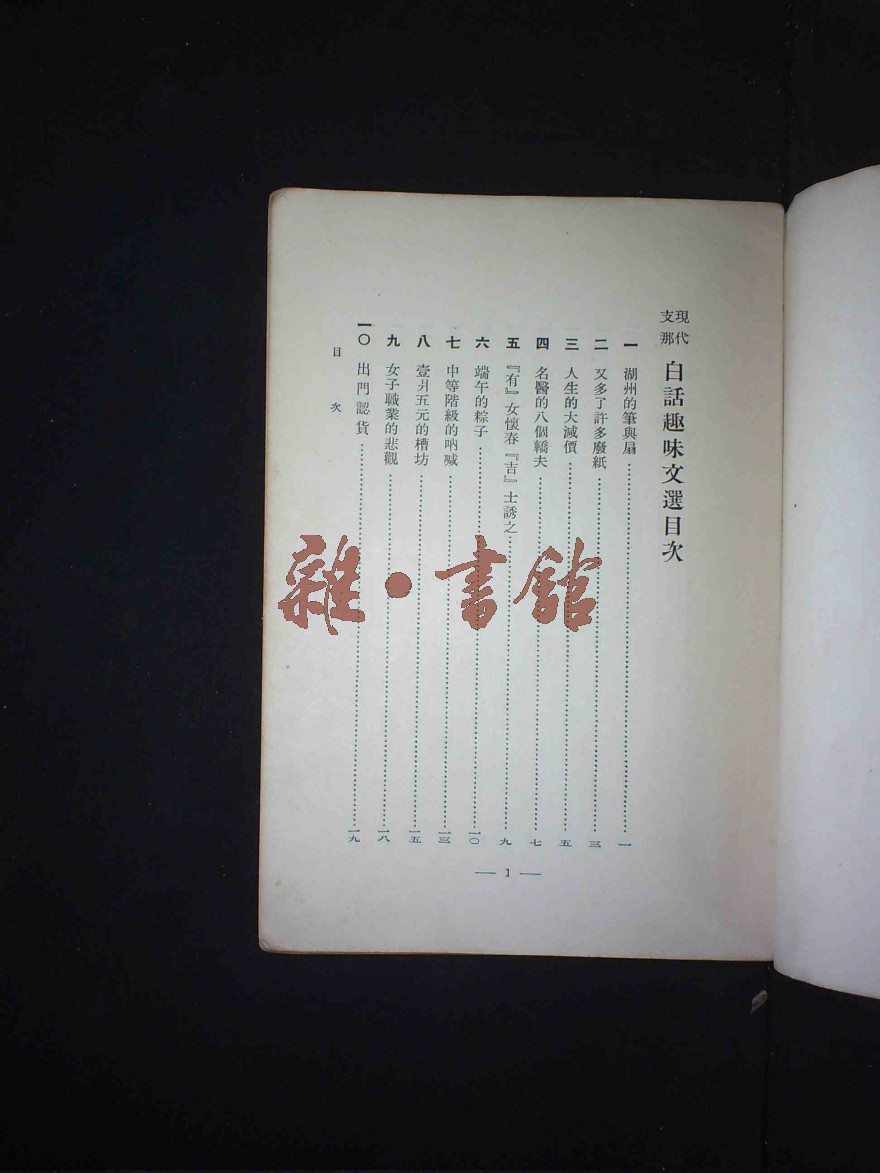 現代支那 白話趣味文選目次
一 湖州的筆與扇…………一
二 又多了許多廢紙…………三
三 人生的大減價…………五
四 名醫的八個轎夫…………七
五 『有』女懷春『吉』士誘之…………九
六 端午的粽子…………一〇
七 中等階級的吶喊…………一三
八 壹廾五元的槽坊…………一五
九 女子職業的悲觀…………一八
一〇 出門認貨…………一九
目次
— 1 —
雜·書館